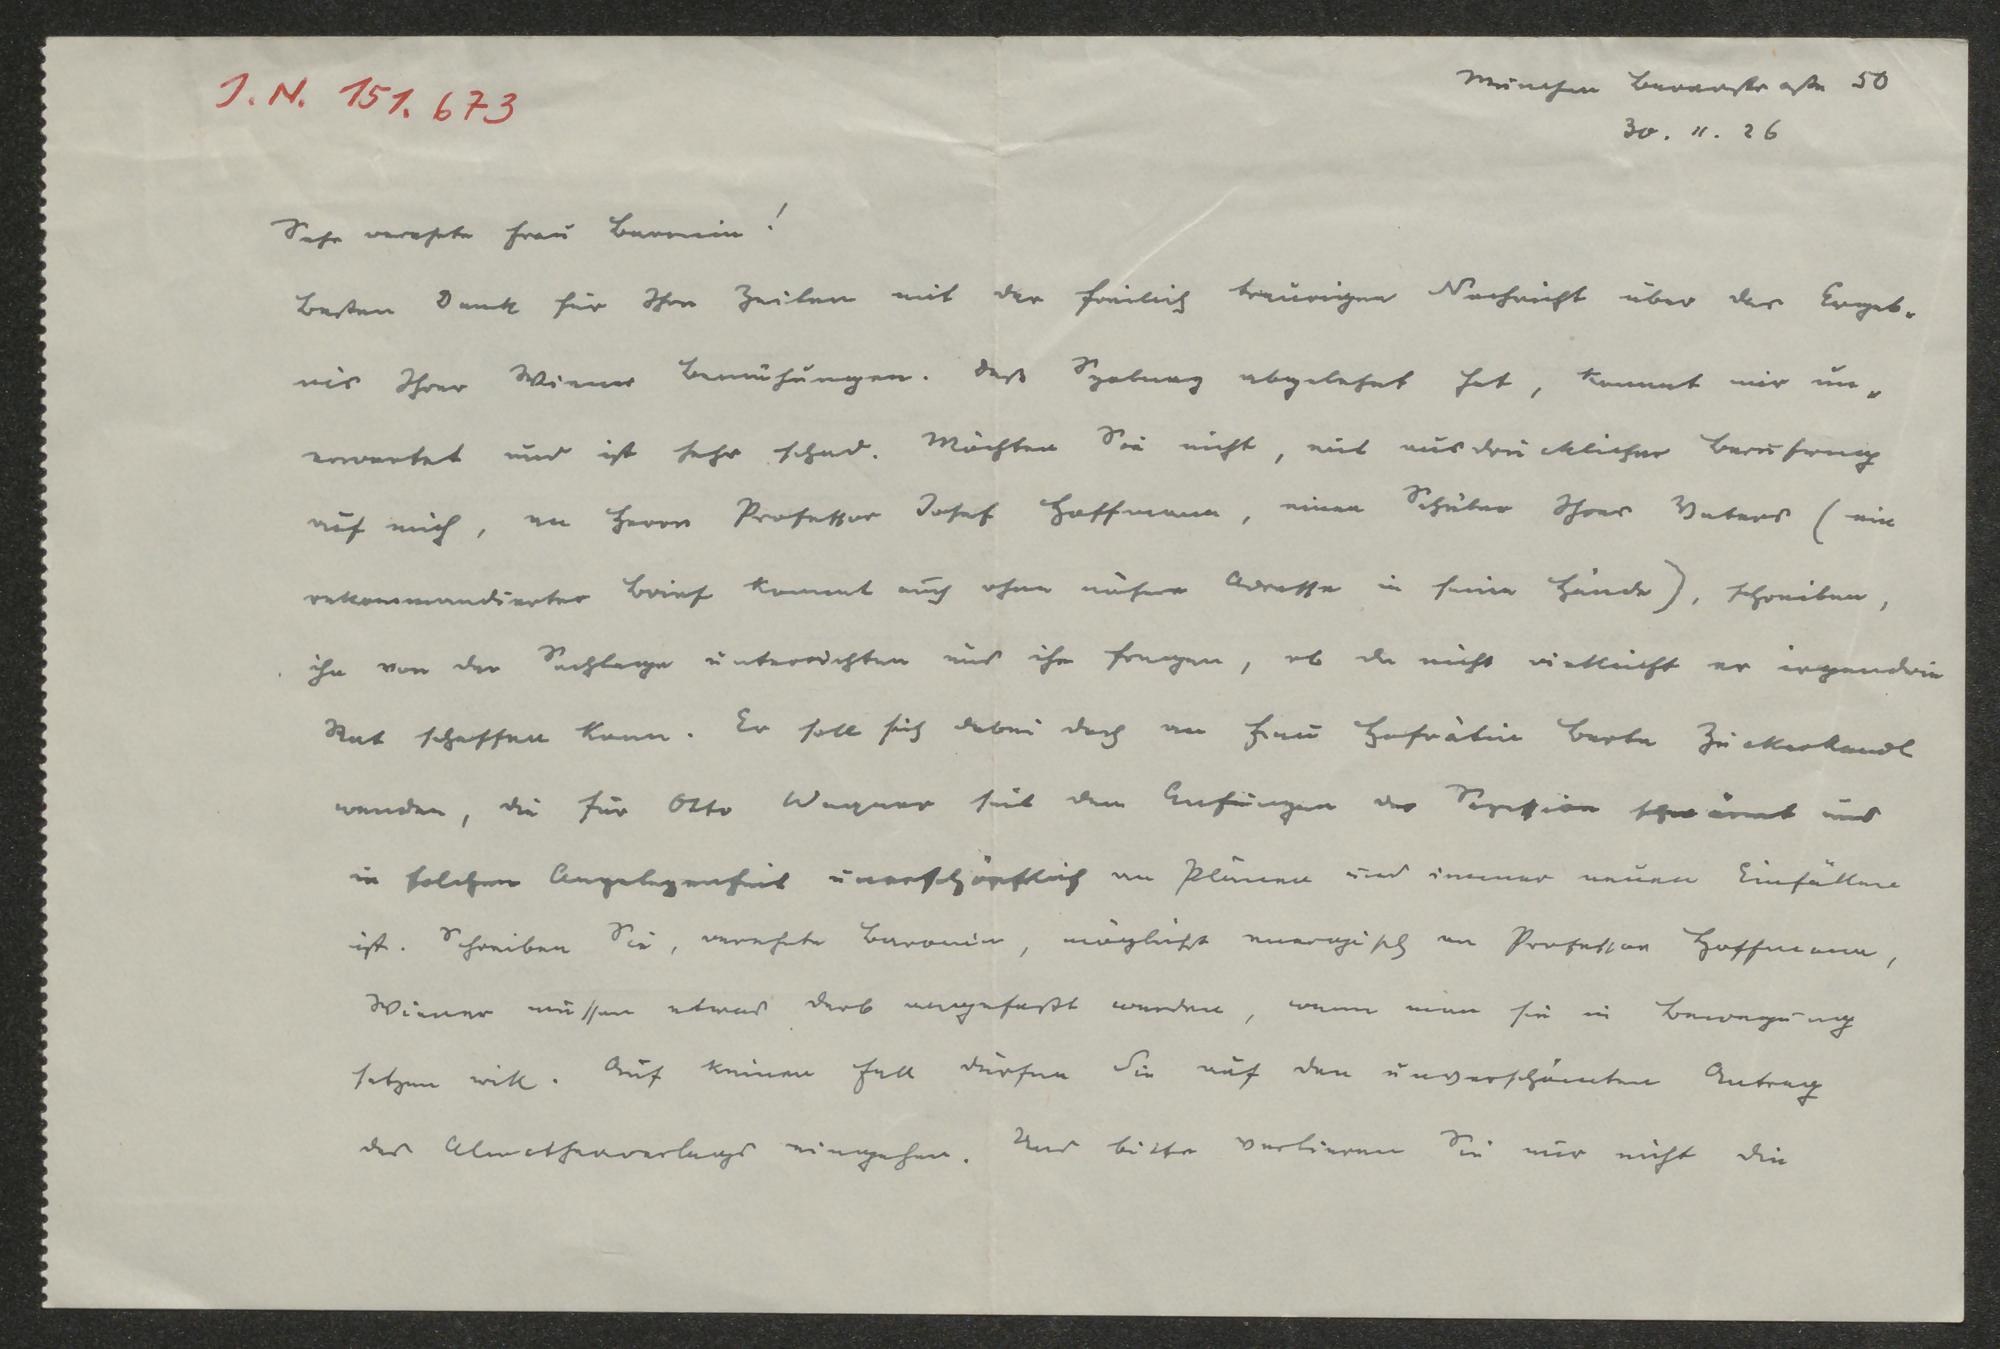 I. N. 151. 673
München Barerstraße 50
30. 11. 26
Sehr verehrte Frau Baronin!
Besten Dank für Ihre Zeilen mit der freilich traurigen Nachricht über das Ergeb„
nis Ihrer Wiener Bemühungen. Daß abgelehnt hat, kommt mir un„
erwartet und ist sehr schad. Möchten Sie nicht, mit ausdrücklicher Berufung
auf mich, an Herrn Professor Josef Hoffmann, einen Schüler Ihres Vaters (ein
rekommandierter Brief kommt auch ohne nähere Adresse in seine Hände), schreiben,
ihn von der Sachlage unterrichten und ihn fragen, ob da nicht vielleicht er irgendwie
Rat schaffen kann. Er soll sich dabei doch an Frau Hofrätin Berta Zuckerkandl
wenden, die für Otto Wagner seit den Anfängen der Sezession schwärmt und
in solchen Angelegenheit unerschöpflich an Plänen und immer neuen Einfällen
ist. Schreiben Sie, verehrte Baronin, möglichst energisch an Professor Hoffmann,
Wiener müssen etwas derb angefaßt werden, wenn man sie in Bewegung
setzen will. Auf keinen Fall dürfen Sie auf den unverschämten Antrag
des Almatheaverlags eingehen. Und bitte verlieren Sie nur nicht die